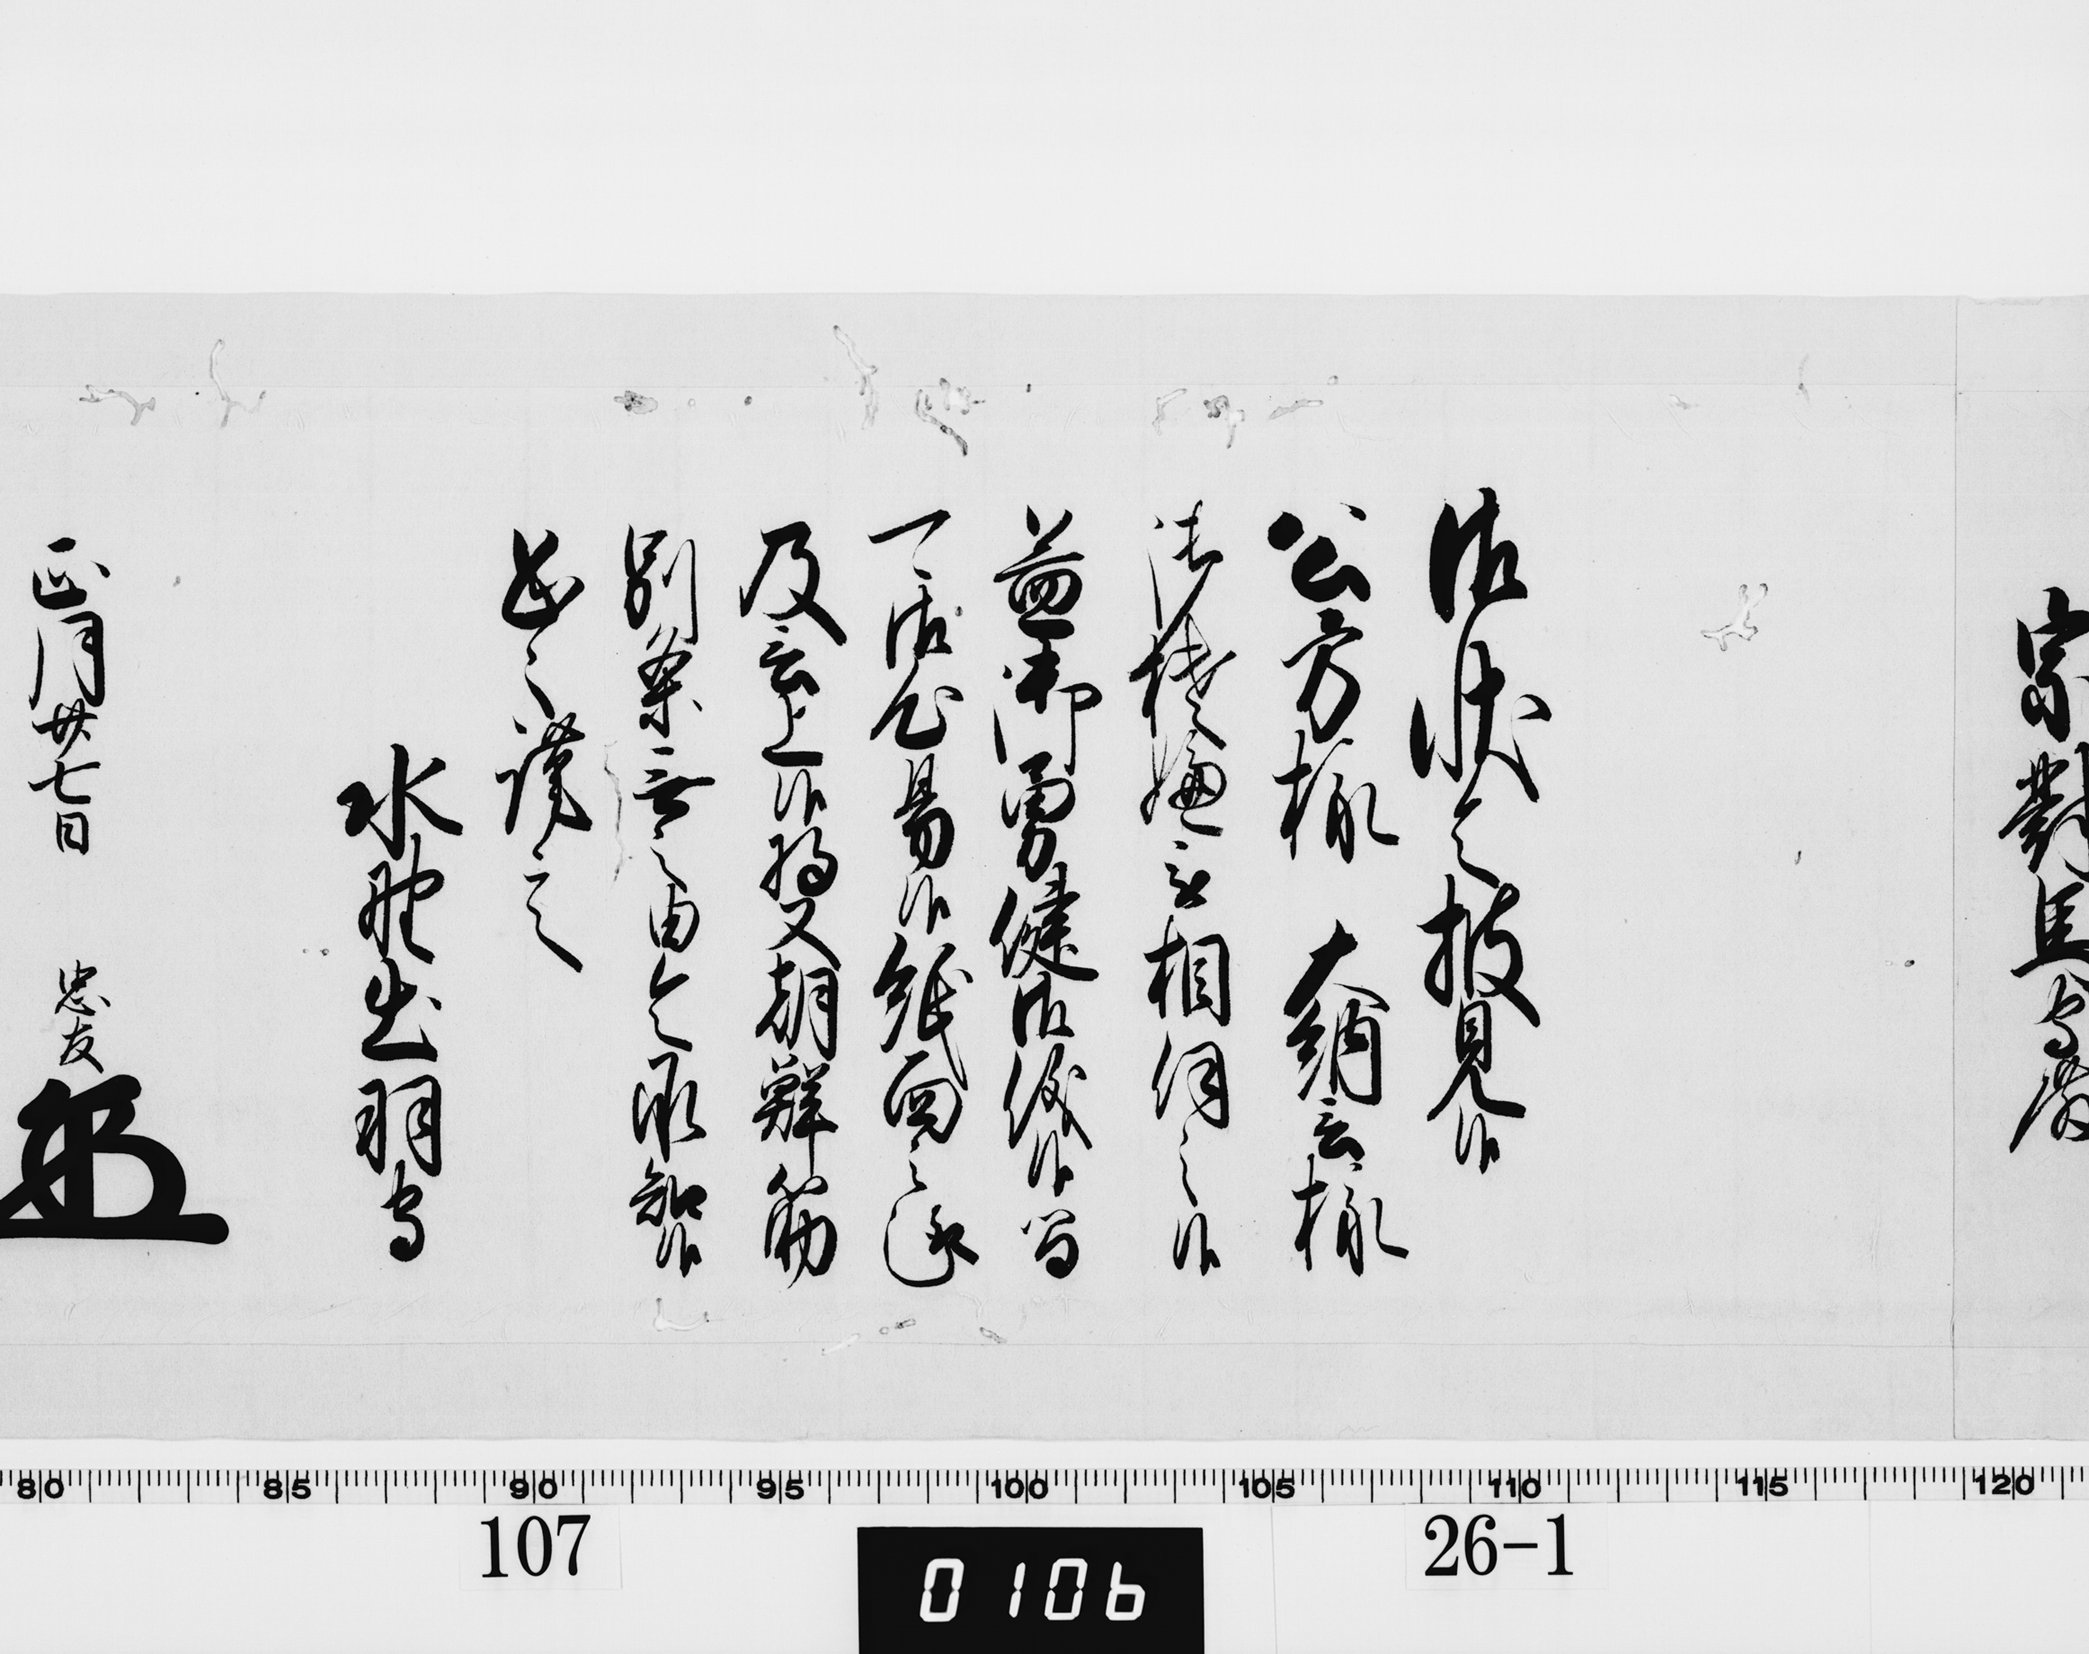 宗對馬守殿
御状令披見候
公方様　大納言様
御機嫌被相伺之候
益御勇健御儀候間
可御心易候紙面之趣
及言上候将又朝鮮筋
別条無之由令承知候
恐々謹言
水野出羽守
正月廿七日　忠友
80 85 90 95 100 105 110 115 120
107
0106
26-1